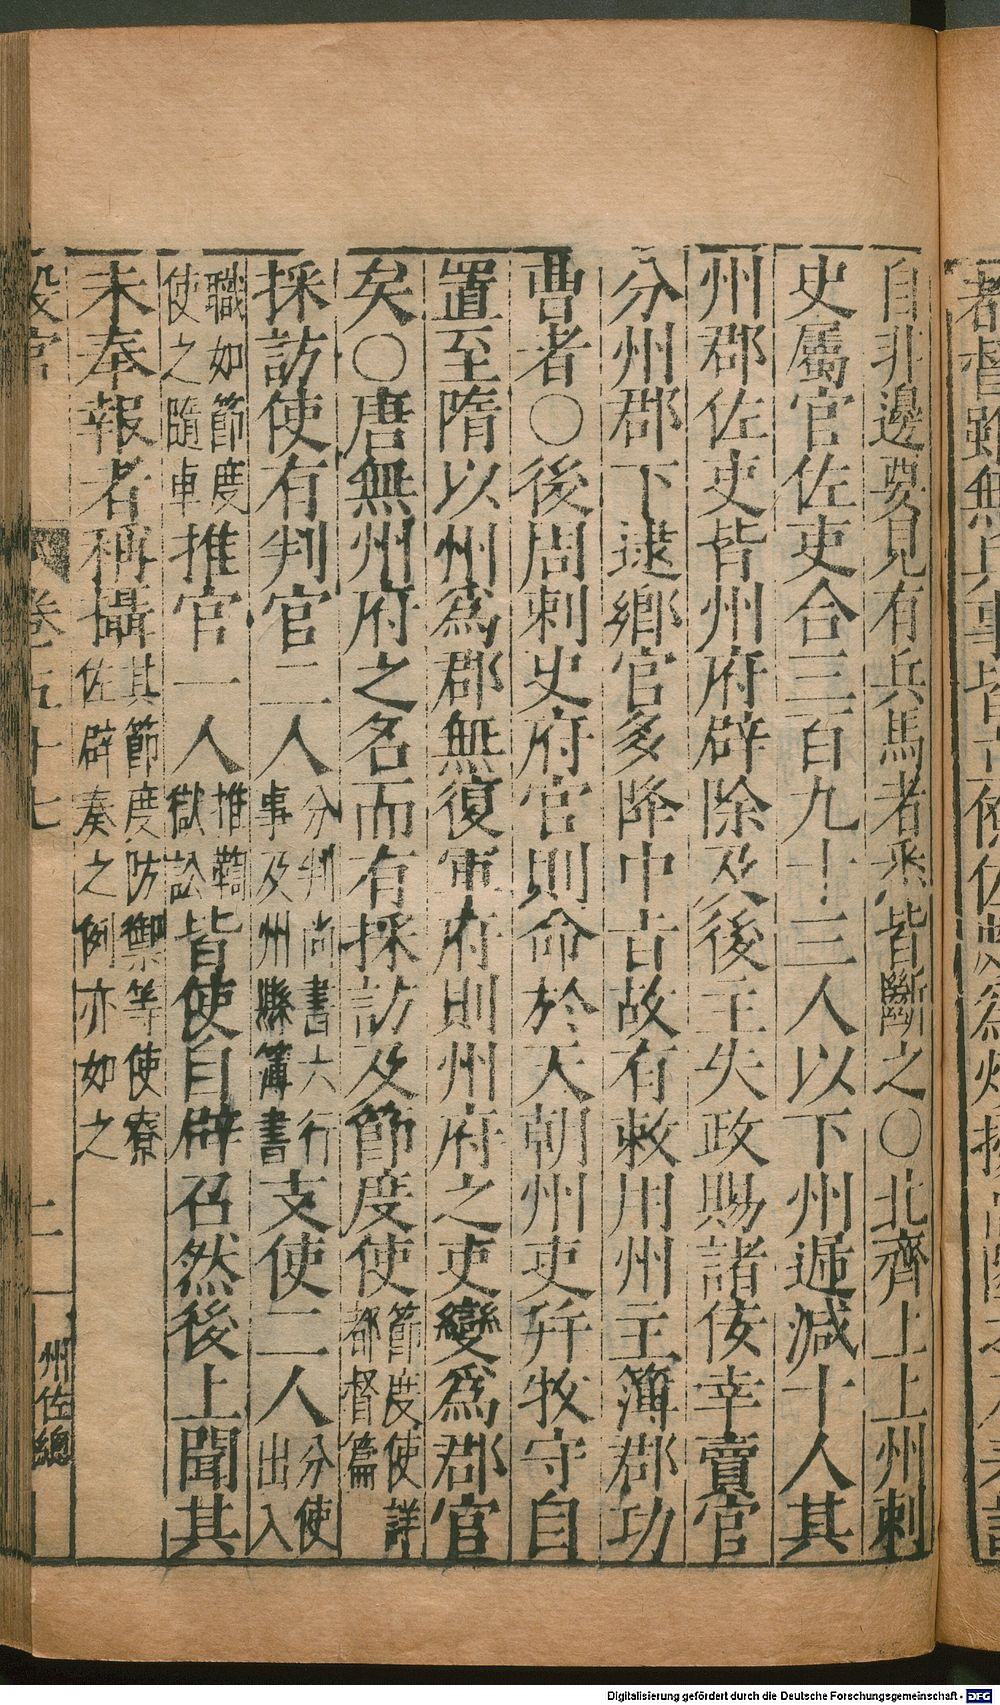 都督雖無兵事皆
自非邊要見有兵馬者悉皆斷之○北齊上上州刺
史屬官佐吏合三百九十三人以下州遞減十人其
州郡佐吏皆州府辟除及後主失政賜諸佞幸賣官
分州郡下逮鄉官多降中㫖故有敕用州主簿郡功
曹者○後周刺史府官則命於天朝州吏幷牧守自
置至隋以州爲郡無復軍府則州府之吏變爲郡官
矣○唐無州府之名而有採訪及節度使節度使詳都督篇
採訪使有判官二人分判尚書六行事及州縣簿書支使二人分使出入
職如節度使之隨軍推官一人推鞫獄訟皆使自辟召然後上聞其
未奉報者稱攝其節度防禦等使寮佐辟奏之例亦如之
卷二百五十七 二 州佐總
Digitalisierung gefördert durch die Deutsche Forschungsgemeinschaft - DFG